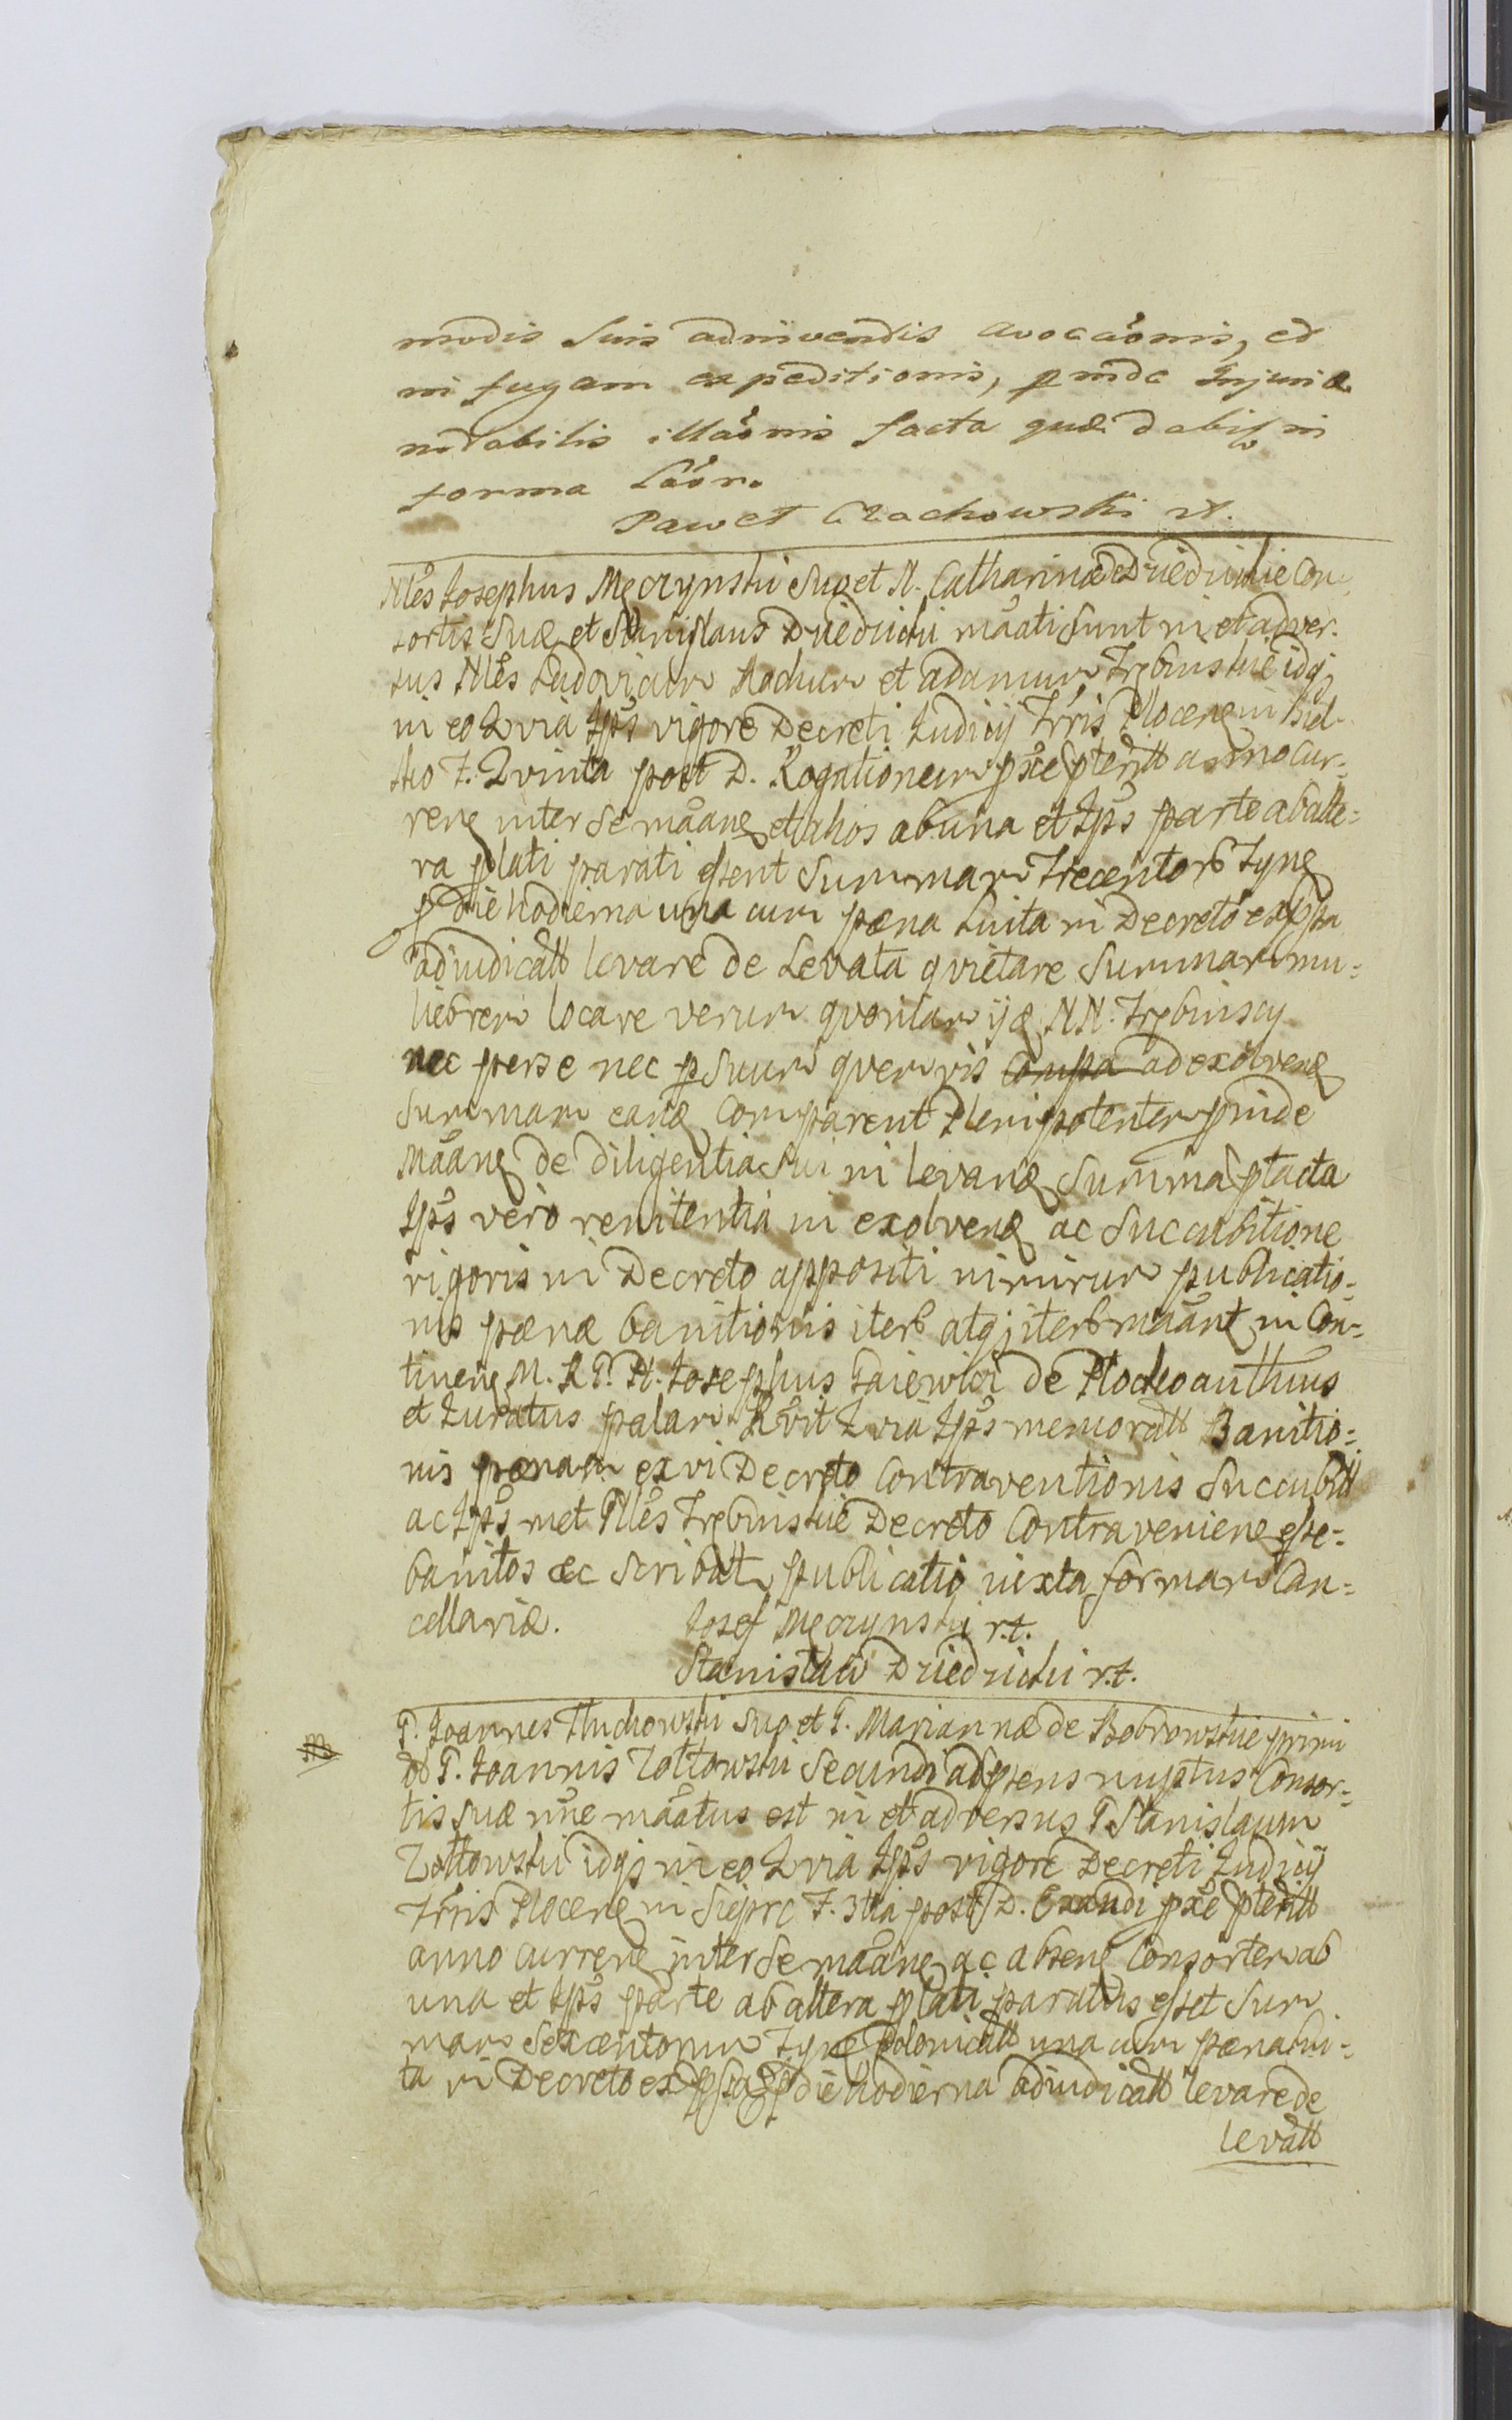 modis suis adinvendis avocaõnis, et
in fugam expeditionis, proinde Injuriæ
notabilis illaõnis facta quæ dabit in
forma Láór.
Paweł Czachowski rt.
Nles Josephus Męczynski Suo et N. Catharinæ de Dziedzickie Con-
sortis Suæ et Stanislaus Dziedzicki maati Sunt in et adver-
sus Nles Ludovicum Rochum et adamum Trębinskie idqz
in eo Qvia Ips vigore Decreti Judicij Trris Plocen in Biel-
sko F. Qvinta post D. Rogationem pxe pteritt anno cur-
ren inter se maan et alios ab una et Ips parte ab alte-
ra plati parati essent Summam Trecentorb Tyn
p die hodierna una cum pæna Luita in Decreto expssa
adiudicatt levare de Levata qvietare Summam mu-
liebrem locare verum qvoniam ijdæ NN. Trębinscy
nec per se nec p Suum qvemvis Compa ad exolven
Summam eand Comparent Plenipotentem pinde
Maan de diligentia Sui in levand Summa ptacta
Ips vero renitentia in exolven ac Succubitione
rigoris in Decreto appositi nimirum publicatio-
nis pænæ banitionis iterb atqz iterb maant in Con-
tinen M. R P. N. Josephus Gaiewski de Plocko authus
et Juratus palam Rvit Qvia Ips memoratt Banitio-
nis pænam ex vi Decreto Contraventionis Succubitt
ac Ips met Nles Trębinskie Decreto Contravenien esse
banitos &c Scribat publicatio iuxta formam Can-
cellariæ.
Josef Męczynski r.t.
Stanisław Dziedzicki r.t.
P. Joannes Kuchowski Suo et G. Mariannæ de Bobrowskie primi
ob G. Joannis Zołtowski Secundi adpsens nuptus Consor-
tis suæ nne maatus est in et adversus G Stanislaum
Zołtowski idqz in eo Qvia Ips vigore Decreti Judicij
Trris Plocen in Sieprc F. 3tia post D. Exaudi pxe pteritt
anno curren inter se maan ac absen Consortem ab
una et Ips parte ab altera plati paratus esset Sum
mam Sexcentorum Tyn Polonicatt una cum pæna Lui-
ta in Decreto expssa p die hodierna adiudicatt levare de
levatt